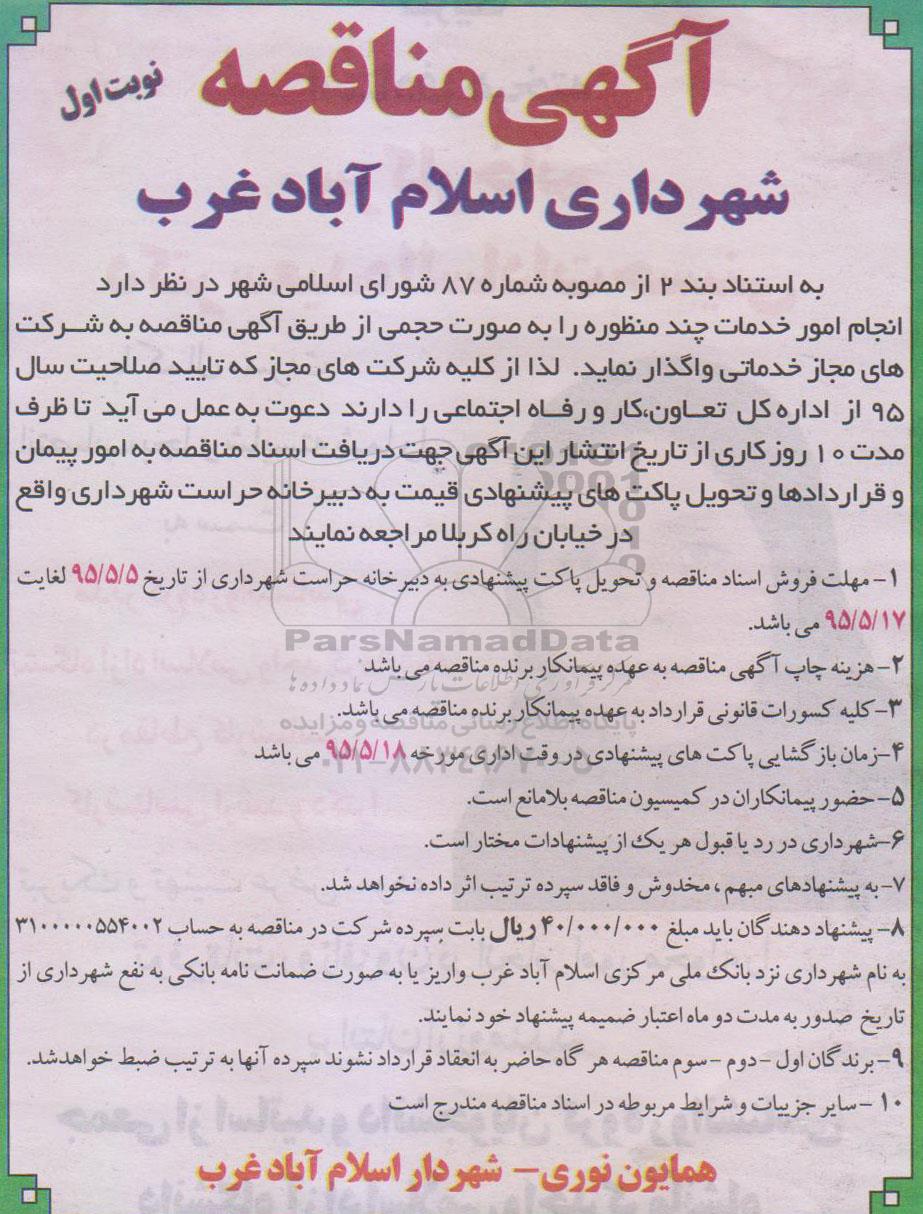 آگهی مناقصه
نوبت اول
شهرداری اسلام آباد غرب
به استناد بند ۲ از مصوبه شماره ۸۷ شورای اسلامی شهر در نظر دارد
انجام امور خدمات چند منظوره را به صورت حجمی از طریق آگهی مناقصه به شرکت
های مجاز خدماتی واگذار نماید. لذا از کلیه شرکت های مجاز که تایید صلاحیت سال
۹۵ از اداره کل تعاون،کار و رفاه اجتماعی را دارند دعوت به عمل می آید تا ظرف
مدت ۱۰ روز کاری از تاریخ انتشار این آگهی جهت دریافت اسناد مناقصه به امور پیمان
و قراردادها و تحویل پاکت های پیشنهادی قیمت به دبیرخانه حراست شهرداری واقع
در خیابان راه کربلا مراجعه نمایند
۱- مهلت فروش اسناد مناقصه و تحویل پاکت پیشنهادی به دبیرخانه حراست شهرداری از تاریخ ۹۵/۵/۵ لغایت
۹۵/۵/۱۷ می باشد.
ParsNamadData
۲- هزینه چاپ آگهی مناقصه به عهده پیمانکار برنده مناقصه می باشد
مرکز فرآوری اطلاعات پارس نماد داده ها
۳- کلیه کسورات قانونی قرارداد به عهده پیمانکار برنده مناقصه می باشد.
پایگاه اطلاع رسانی مناقصه و مزایده
۴- زمان بازگشایی پاکت های پیشنهادی در وقت اداری مورخه ۹۵/۵/۱۸ می باشد
۵- حضور پیمانکاران در کمیسیون مناقصه بلامانع است.
۶- شهرداری در رد یا قبول هر یک از پیشنهادات مختار است.
۷- به پیشنهادهای مبهم ، مخدوش و فاقد سپرده ترتیب اثر داده نخواهد شد.
۸- پیشنهاد دهندگان باید مبلغ ۴۰/۰۰۰/۰۰۰ ریال بابت سپرده شرکت در مناقصه به حساب ۳۱۰۰۰۰۰۵۵۴۰۰۲
به نام شهرداری نزد بانک ملی مرکزی اسلام آباد غرب واریز یا به صورت ضمانت نامه بانکی به نفع شهرداری از
تاریخ صدور به مدت دو ماه اعتبار ضمیمه پیشنهاد خود نمایند.
۹- برندگان اول -دوم -سوم مناقصه هر گاه حاضر به انعقاد قرارداد نشوند سپرده آنها به ترتیب ضبط خواهدشد.
۱۰ -سایر جزییات و شرایط مربوطه در اسناد مناقصه مندرج است
همایون نوری- شهردار اسلام آباد غرب